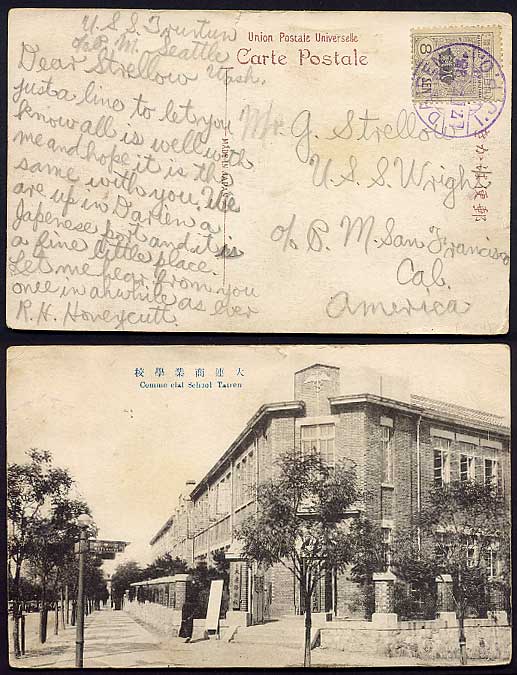 U.S.S. Truxtun
c/o P.M. Seattle
Wash.
Dear Strellow
just a line to let you
know all is well with
me and hope it is the
same with you. We
are up in Darien a
Japenese port and it is
a fine little place.
Let me hear from you
once in awhile as ever
R. H. Honeycutt.
Union Postale Universelle
Carte Postale
Mr G. Strellow
U.S.S. Wright
c/o P. M. San Francisco
Cal.
America
MADE IN JAPAN
きか葉便郵
校學業商連大
Commercial School Tairen